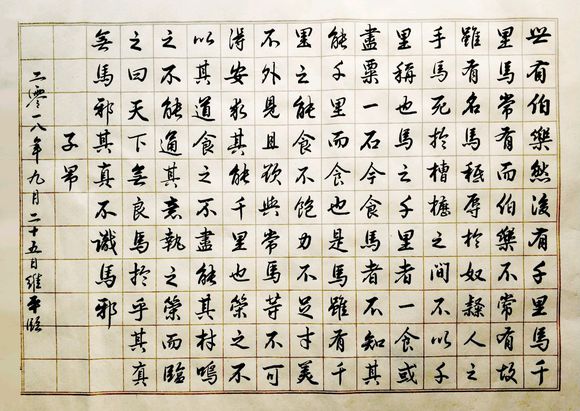 世有伯樂然後有千里馬千
里馬常有而伯樂不常有故
雖有名馬秪辱於奴隸人之
手馬死於槽櫪之間不以千
里稱也馬之千里者一食或
盡粟一石今食馬者不知其
能千里而食也是馬雖有千
里之能食不飽力不足才美
不外見且欲與常馬等不可
得安求其能千里也策之不
以其道食之不盡能其材嗚
之不能通其意執之策而臨
之曰天下無良馬於乎其真
無馬邪其真不識馬邪
子昂
二零一八年九月二十五日維平臨